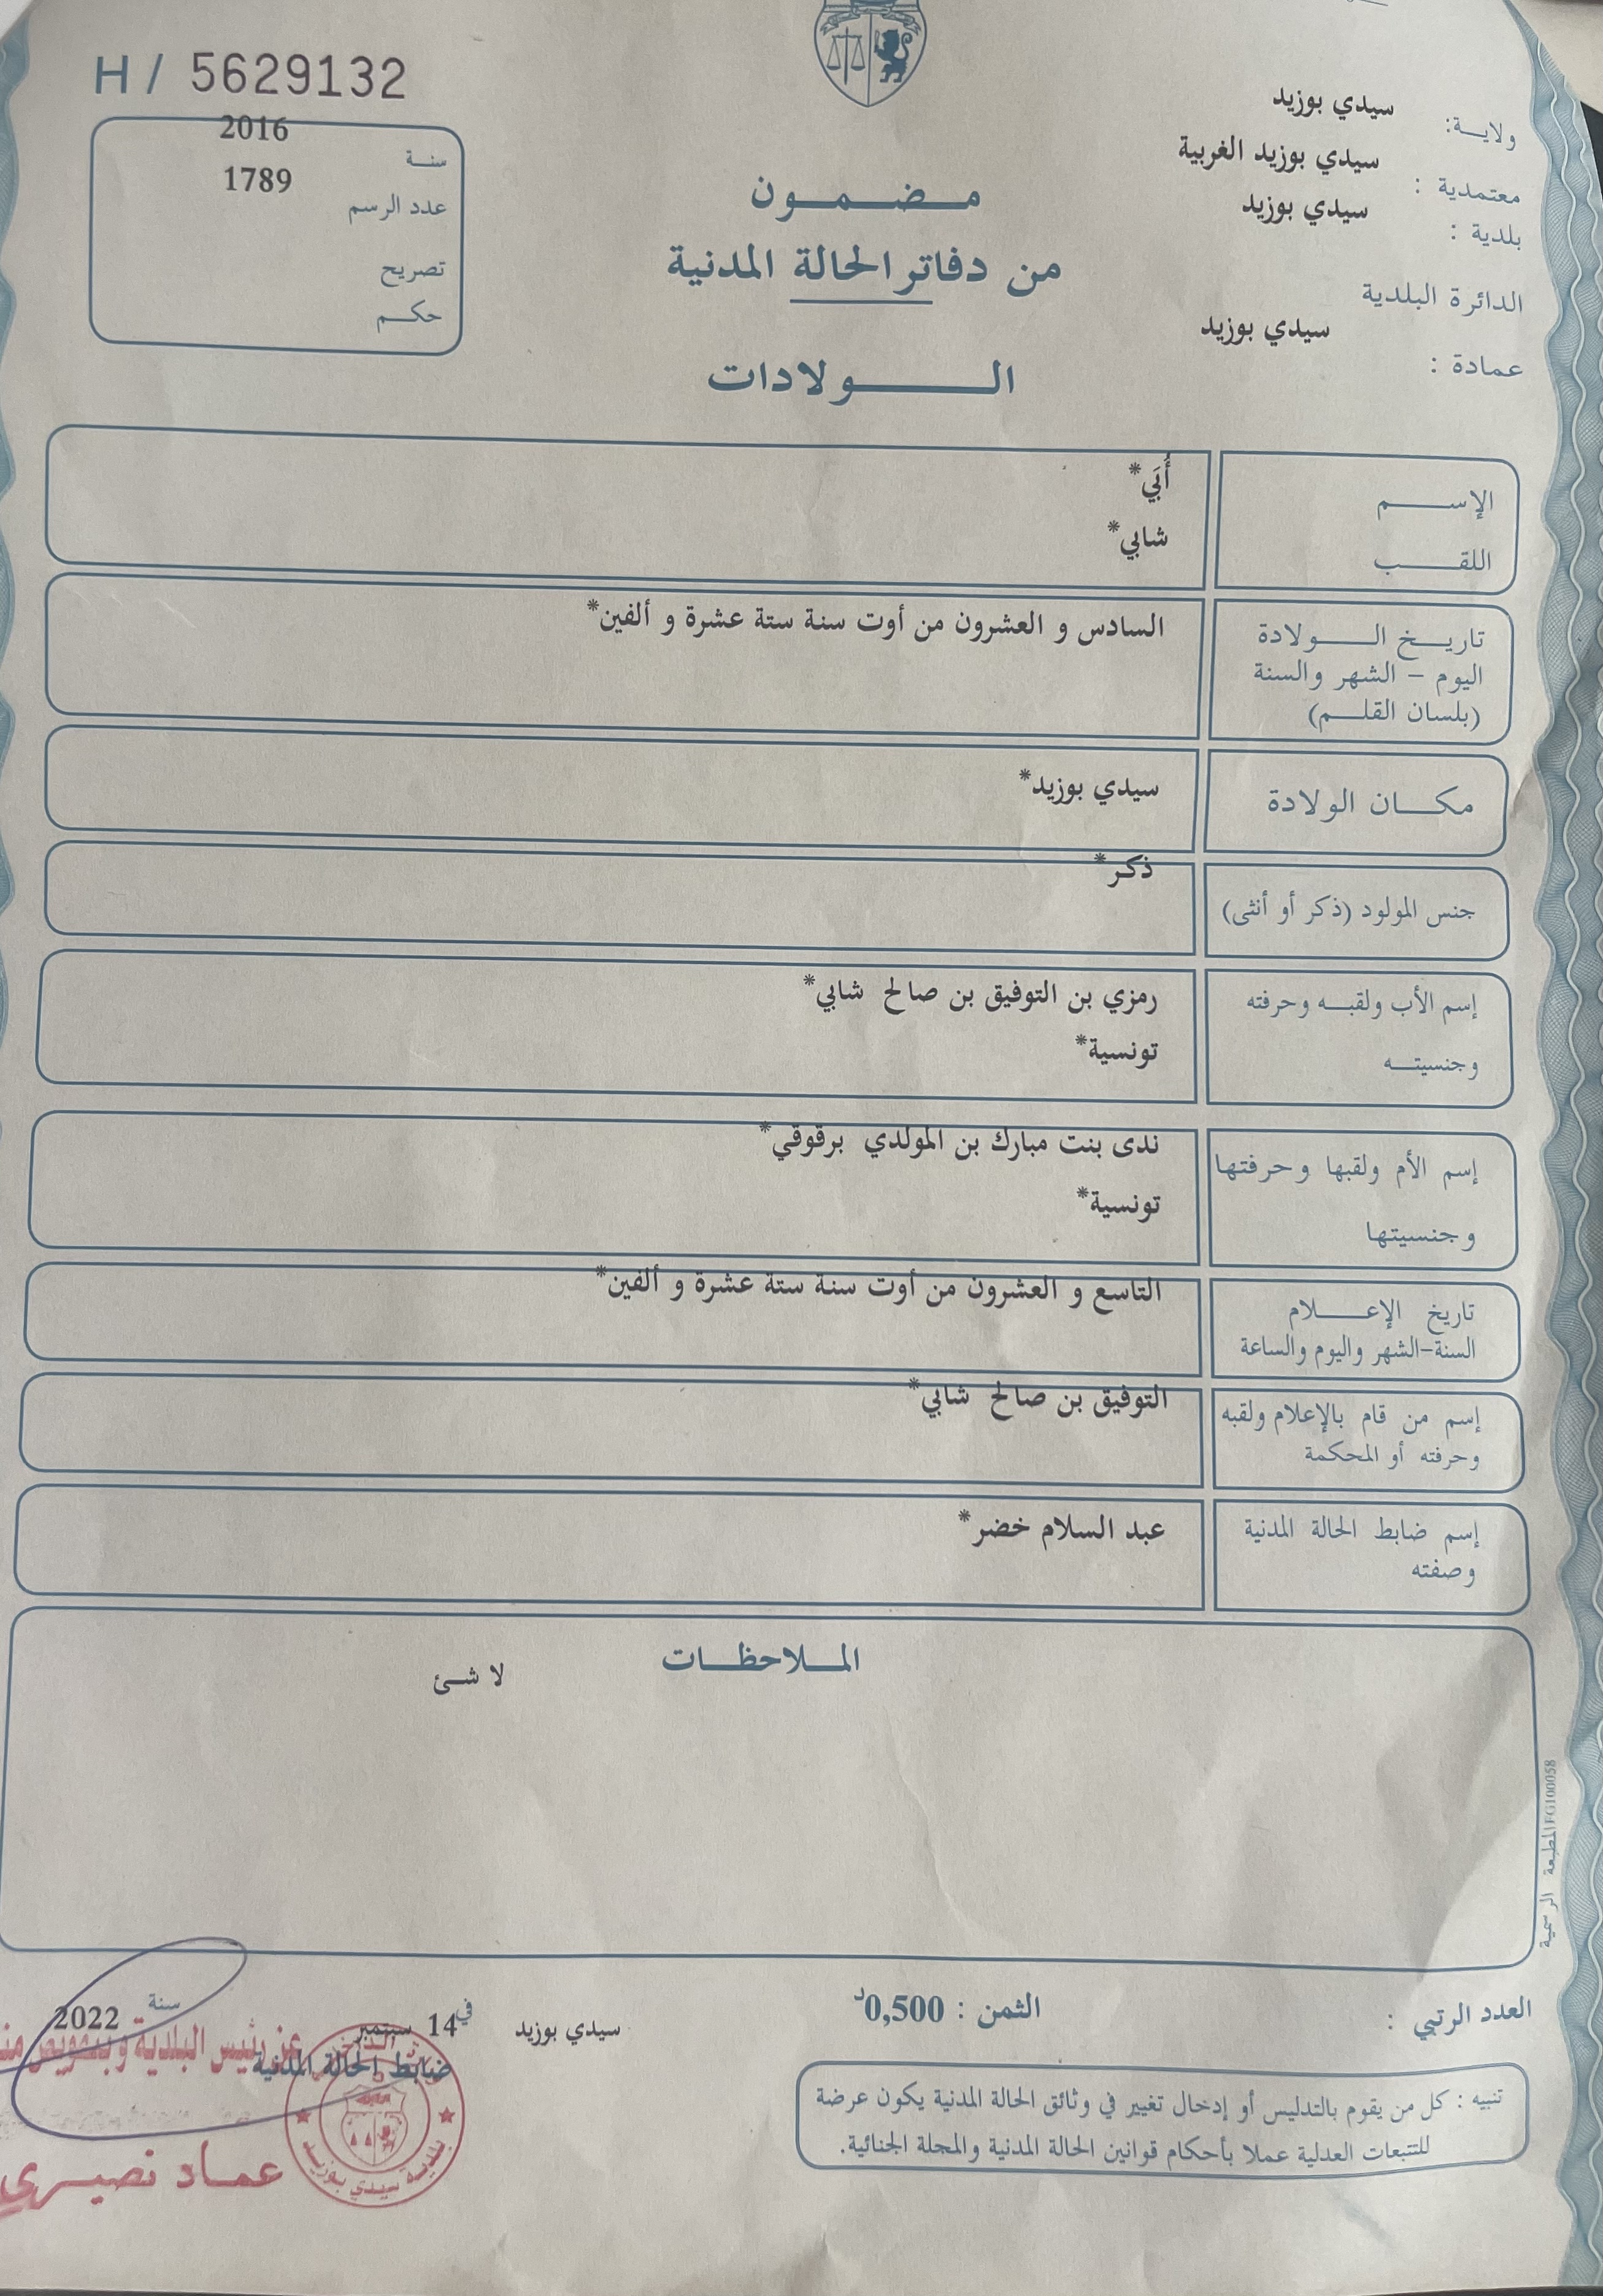 H / 5629132
ولاية: سيدي بوزيد
معتمدية : سيدي بوزيد الغربية
بلدية : سيدي بوزيد
الدائرة البلدية
عمادة : سيدي بوزيد
سنة 2016
عدد الرسم 1789
تصريح
حكم
مضمون
من دفاتر الحالة المدنية
الولادات
الإسم أُبَي*
اللقب شابي*
تاريخ الولادة السادس و العشرون من أوت سنة ستة عشرة و ألفين*
اليوم - الشهر والسنة
(بلسان القلم)
مكان الولادة سيدي بوزيد*
جنس المولود (ذكر أو أنثى) ذكر*
إسم الأب ولقبه وحرفته رمزي بن التوفيق بن صالح شابي*
وجنسيته تونسية*
إسم الأم ولقبها وحرفتها ندى بنت مبارك بن المولدي برقوقي*
وجنسيتها تونسية*
تاريخ الإعلام التاسع و العشرون من أوت سنة ستة عشرة و ألفين*
السنة-الشهر واليوم والساعة
إسم من قام بالإعلام ولقبه التوفيق بن صالح شابي*
وحرفته أو المحكمة
إسم ضابط الحالة المدنية عبد السلام خضر*
وصفته
الملاحظات
لا شئ
المطبعة الرسمية FG100058
العدد الرتبي :
الثمن : 0,500د
سيدي بوزيد في 14 سبتمبر سنة 2022
ضابط الحالة المدنية
عن رئيس البلدية وبتفويض منه
عماد نصيري
بلدية سيدي بوزيد
تنبيه : كل من يقوم بالتدليس أو إدخال تغيير في وثائق الحالة المدنية يكون عرضة
للتتبعات العدلية عملا بأحكام قوانين الحالة المدنية والمجلة الجنائية.